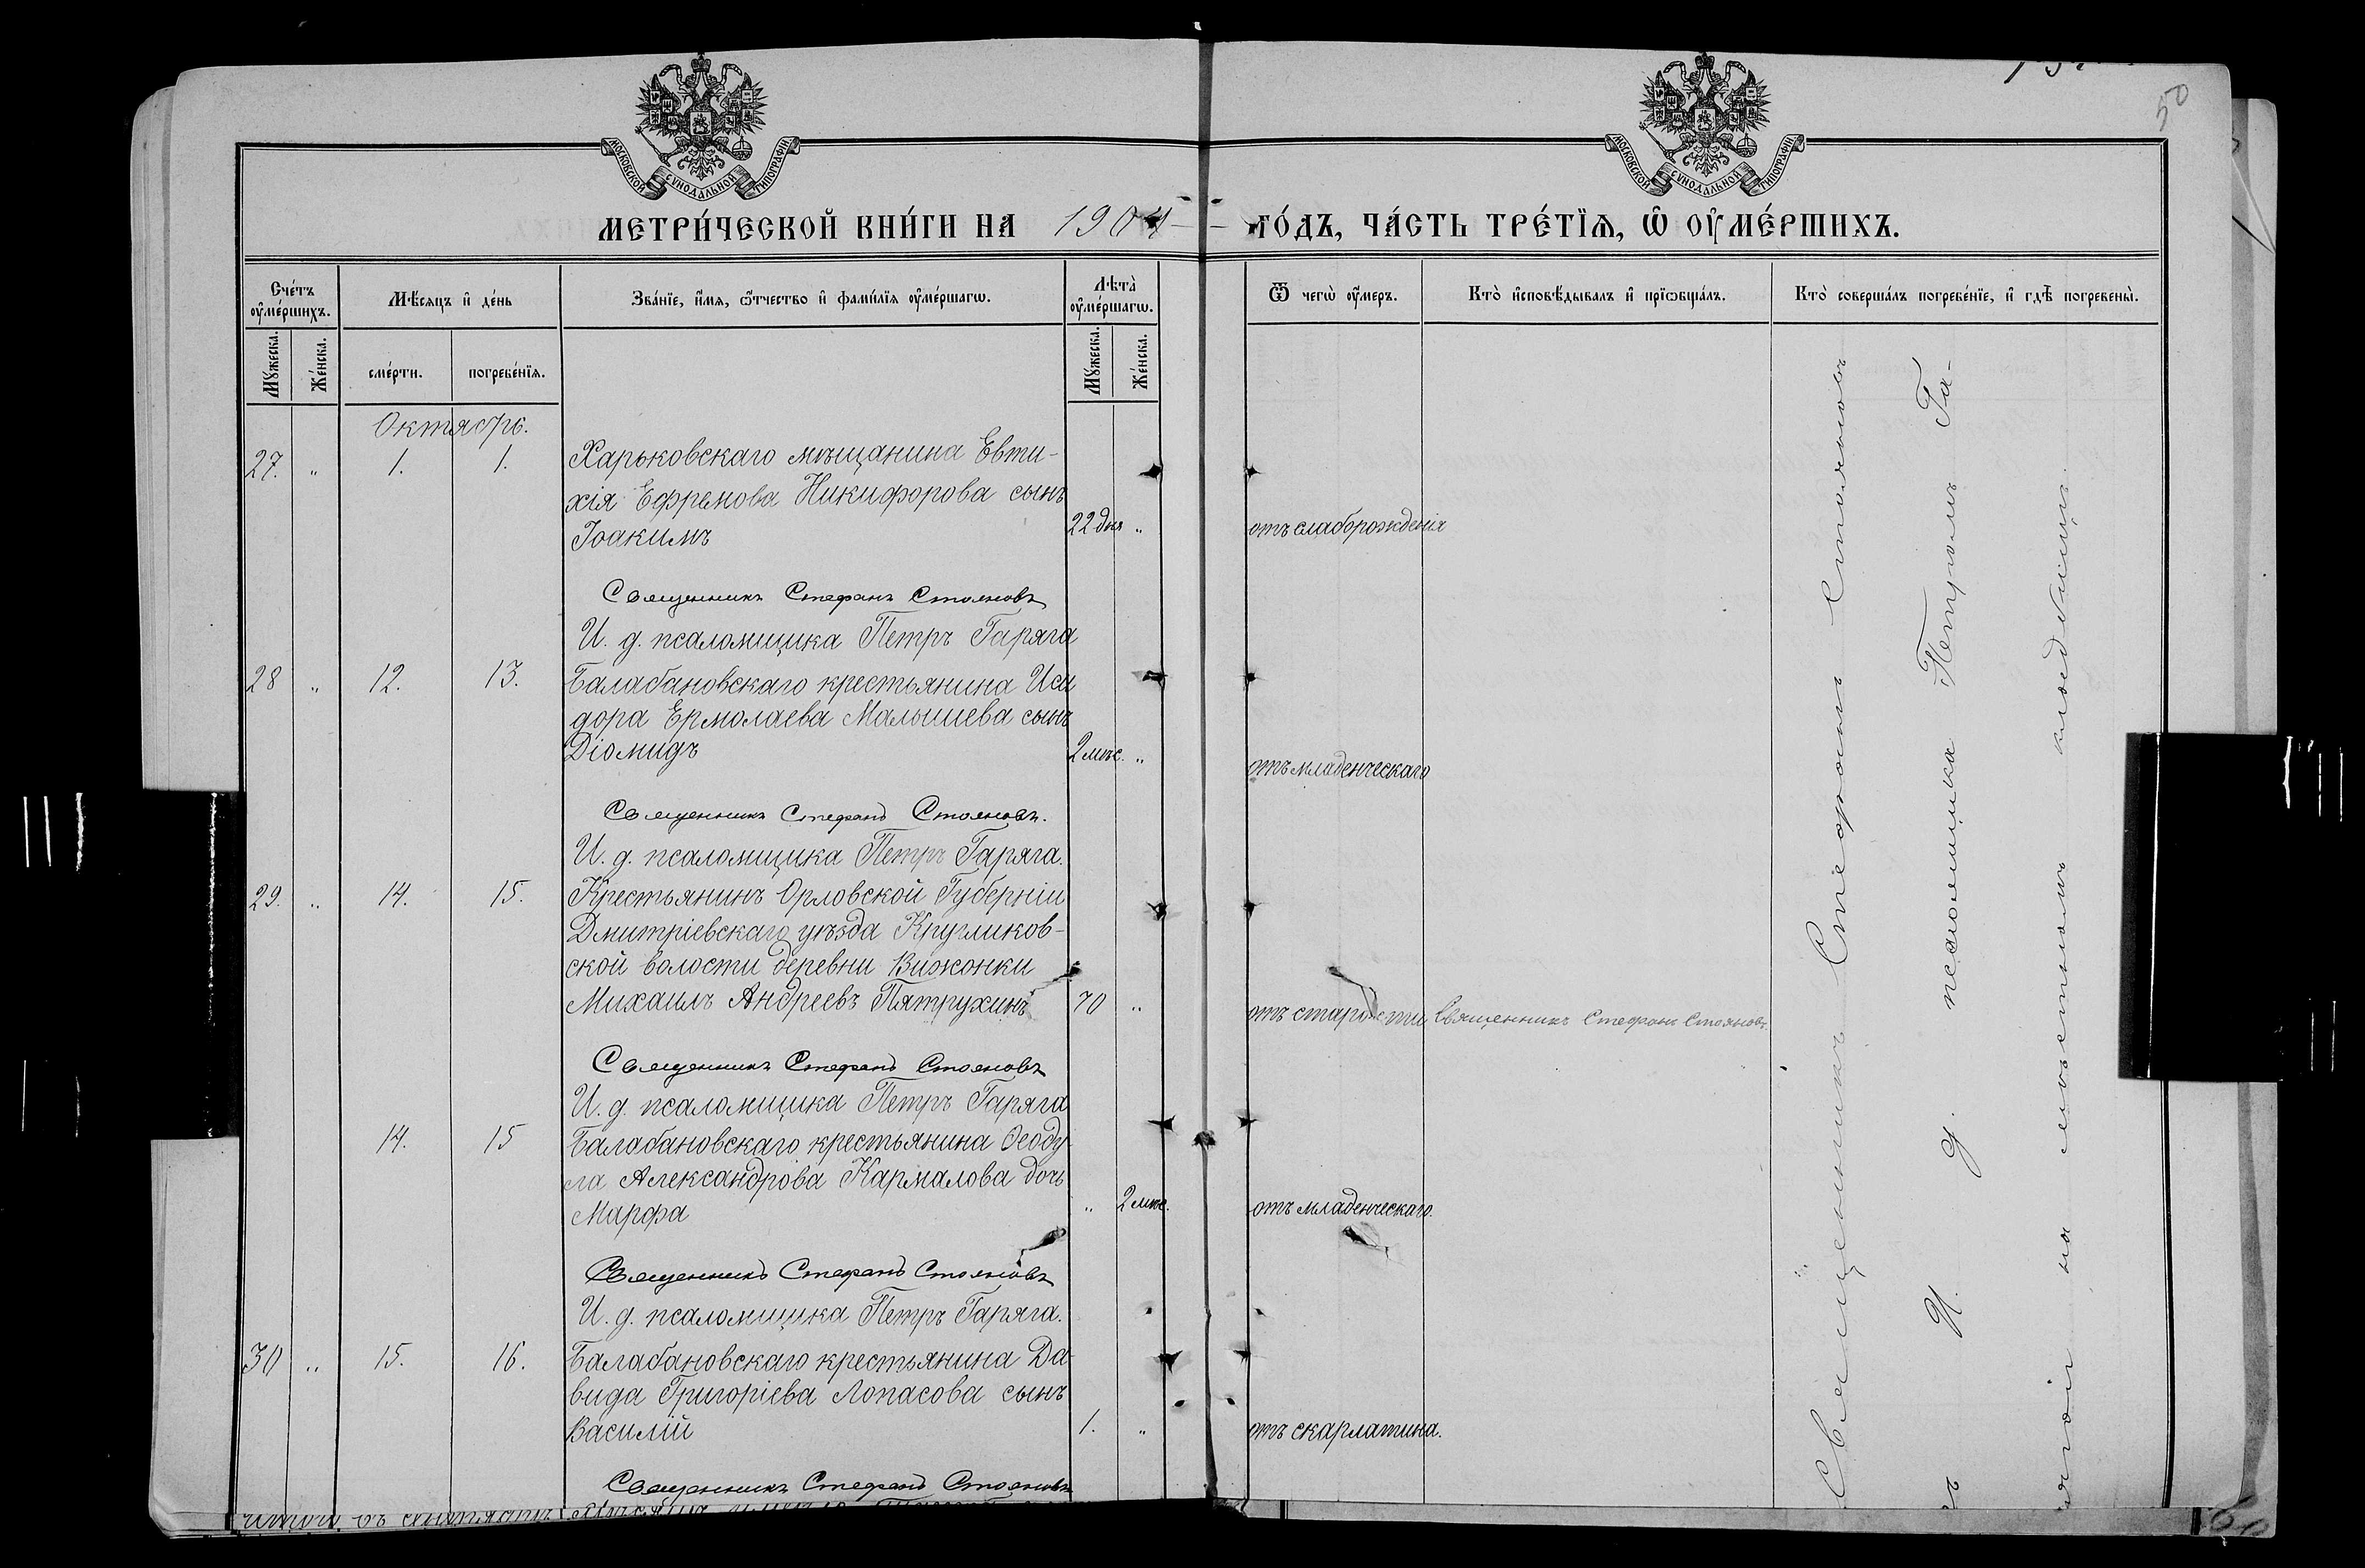 50
МОСКОВСКОЙ СѴНОДАЛЬНОЙ ТИПОГРАФІИ
МОСКОВСКОЙ СѴНОДАЛЬНОЙ ТИПОГРАФІИ
МЕТРИ́ЧЕСКОЙ КНИ́ГИ НА 1904 ГО́ДЪ, ЧА́СТЬ ТРЕ́ТЇѦ, Ѡ҆ ОУ҆МЕ́РШИХЪ.
Сче́тъ оу҆ме́ршихъ.
Мѹ́жеска.
Же́нска.
Мѣ́сяцъ и҆ де́нь
сме́рти.
погребе́нїя.
Зва́нїе, и҆́мя, ѻ҆́тчество и҆ фами́лїя оу҆ме́ршагѡ.
Лѣ́та оу҆ме́ршагѡ.
Мѹ́жеска.
Же́нска.
Ѿ чегѡ̀ оу҆́меръ.
Кто̀ и҆сповѣ́дывалъ и҆ прїѡбща́лъ.
Кто̀ соверша́лъ погребе́нїе, и҆ гдѣ̀ погребены̀.
Октябрь.
27. " 1. 1. Харьковскаго мѣщанина Евти-
хія Ефремова Никифорова сынъ
Іоакимъ 22 дня " отъ слаборожденія
Священникъ Стефанъ Стояновъ
И. д. псаломщика Петръ Гаряга
28 " 12. 13. Балабановскаго крестьянина Иси
дора Ермолаева Малышева сынъ
Діомидъ 2 мѣс. " отъ младенческаго
Священникъ Стефанъ Стояновъ.
И. д. псаломщика Петръ Гаряга.
29. " 14. 15. Крестьянинъ Орловской Губерніи
Дмитріевскаго уѣзда Кругликов-
ской волости деревни Вижонки
Михаилъ Андреевъ Пятрухинъ 70 " отъ старости Священникъ Стефанъ Стояновъ.
Священникъ Стефанъ Стояновъ
И. д. псаломщика Петръ Гаряга
14. 15 Балабановскаго крестьянина Ѳеоду
ла Александрова Кармалова дочь
Марфа " 2 мѣс. отъ младенческаго.
Священникъ Стефанъ Стояновъ
И. д. псаломщика Петръ Гаряга.
30 " 15. 16. Балабановскаго крестьянина Да-
вида Григоріева Лопасова сынъ
Василій 1. " отъ скарлатина.
Священникъ Стефанъ Стояновъ
Священникъ Стефанъ Стояновъ
съ И. д. псаломщика Петромъ Га-
рягой на мѣстномъ кладбищѣ.